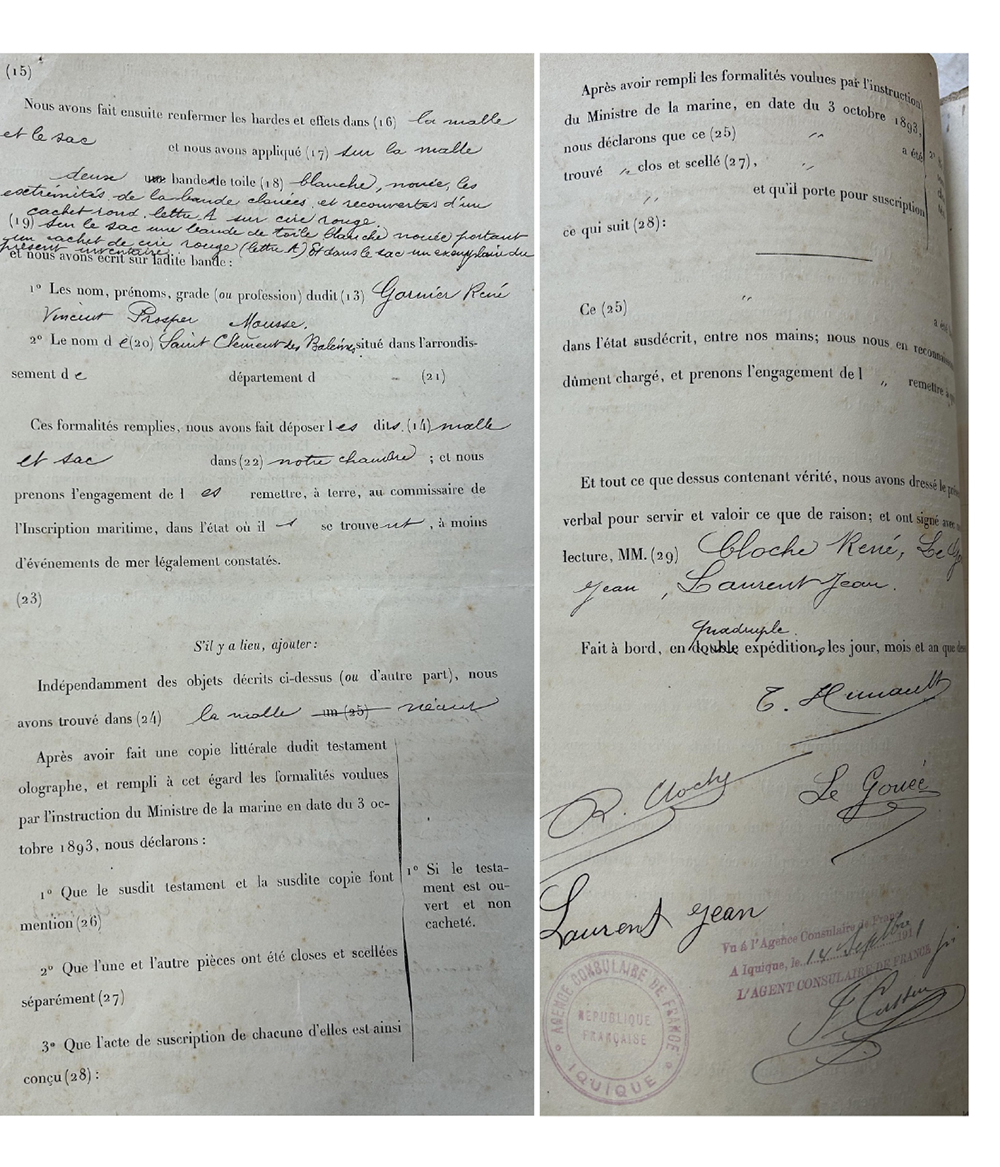 (15)
Nous avons fait ensuite renfermer les hardes et effets dans (16) la malle
et le sac et nous avons appliqué (17) sur la malle
deux bandes de toile (18) blanche, nouée, les
extrémités de la bande clouées, et recouvertes d'un
cachet rond, lettre A sur cire rouge
(19) Sur le sac une bande de toile blanche nouée portant
un cachet de cire rouge (lettre A) Et dans le sac un exemplaire du
présent inventaire.
et nous avons écrit sur ladite bande :
1° Les nom, prénoms, grade (ou profession) dudit (13) Garnier René
Vincent Prosper Mousse.
2° Le nom d e (20) Saint Clément des Baleines, situé dans l'arrondis-
sement d e département d - (21)
Ces formalités remplies, nous avons fait déposer l es dits (14) malle
et sac dans (22) notre chambre ; et nous
prenons l'engagement de l es remettre, à terre, au commissaire de
l'Inscription maritime, dans l'état où il s se trouvent, à moins
d'événements de mer légalement constatés.
(23)
S'il y a lieu, ajouter :
Indépendamment des objets décrits ci-dessus (ou d'autre part), nous
avons trouvé dans (24) la malle un (25) néant
Après avoir fait une copie littérale dudit testament
olographe, et rempli à cet égard les formalités voulues
par l'instruction du Ministre de la marine en date du 3 oc-
tobre 1893, nous déclarons :
1° Que le susdit testament et la susdite copie font
mention (26)
1° Si le testa-
ment est ou-
vert et non
cacheté.
2° Que l'une et l'autre pièces ont été closes et scellées
séparément (27)
3° Que l'acte de suscription de chacune d'elles est ainsi
conçu (28) :
Après avoir rempli les formalités voulues par l'instruction
du Ministre de la marine, en date du 3 octobre 1893,
nous déclarons que ce (25) " a été
trouvé " clos et scellé (27), "
" et qu'il porte pour suscription
ce qui suit (28) :
2°
Ce (25) " a été
dans l'état susdécrit, entre nos mains; nous nous en
dûment chargé, et prenons l'engagement de l " remettre
Et tout ce que dessus contenant vérité, nous avons dressé le
verbal pour servir et valoir ce que de raison; et ont signé
lecture, MM. (29) Cloche René, Le
Jean, Laurent Jean.
quadruple
Fait à bord, en double expédition, les jour, mois et an que
R. Cloche
Le Gouée
Laurent Jean
Vu à l'Agence Consulaire de France
A Iquique, le 14 Septbre 1911
L'AGENT CONSULAIRE DE FRANCE
AGENCE CONSULAIRE DE FRANCE
REPUBLIQUE
FRANÇAISE
IQUIQUE